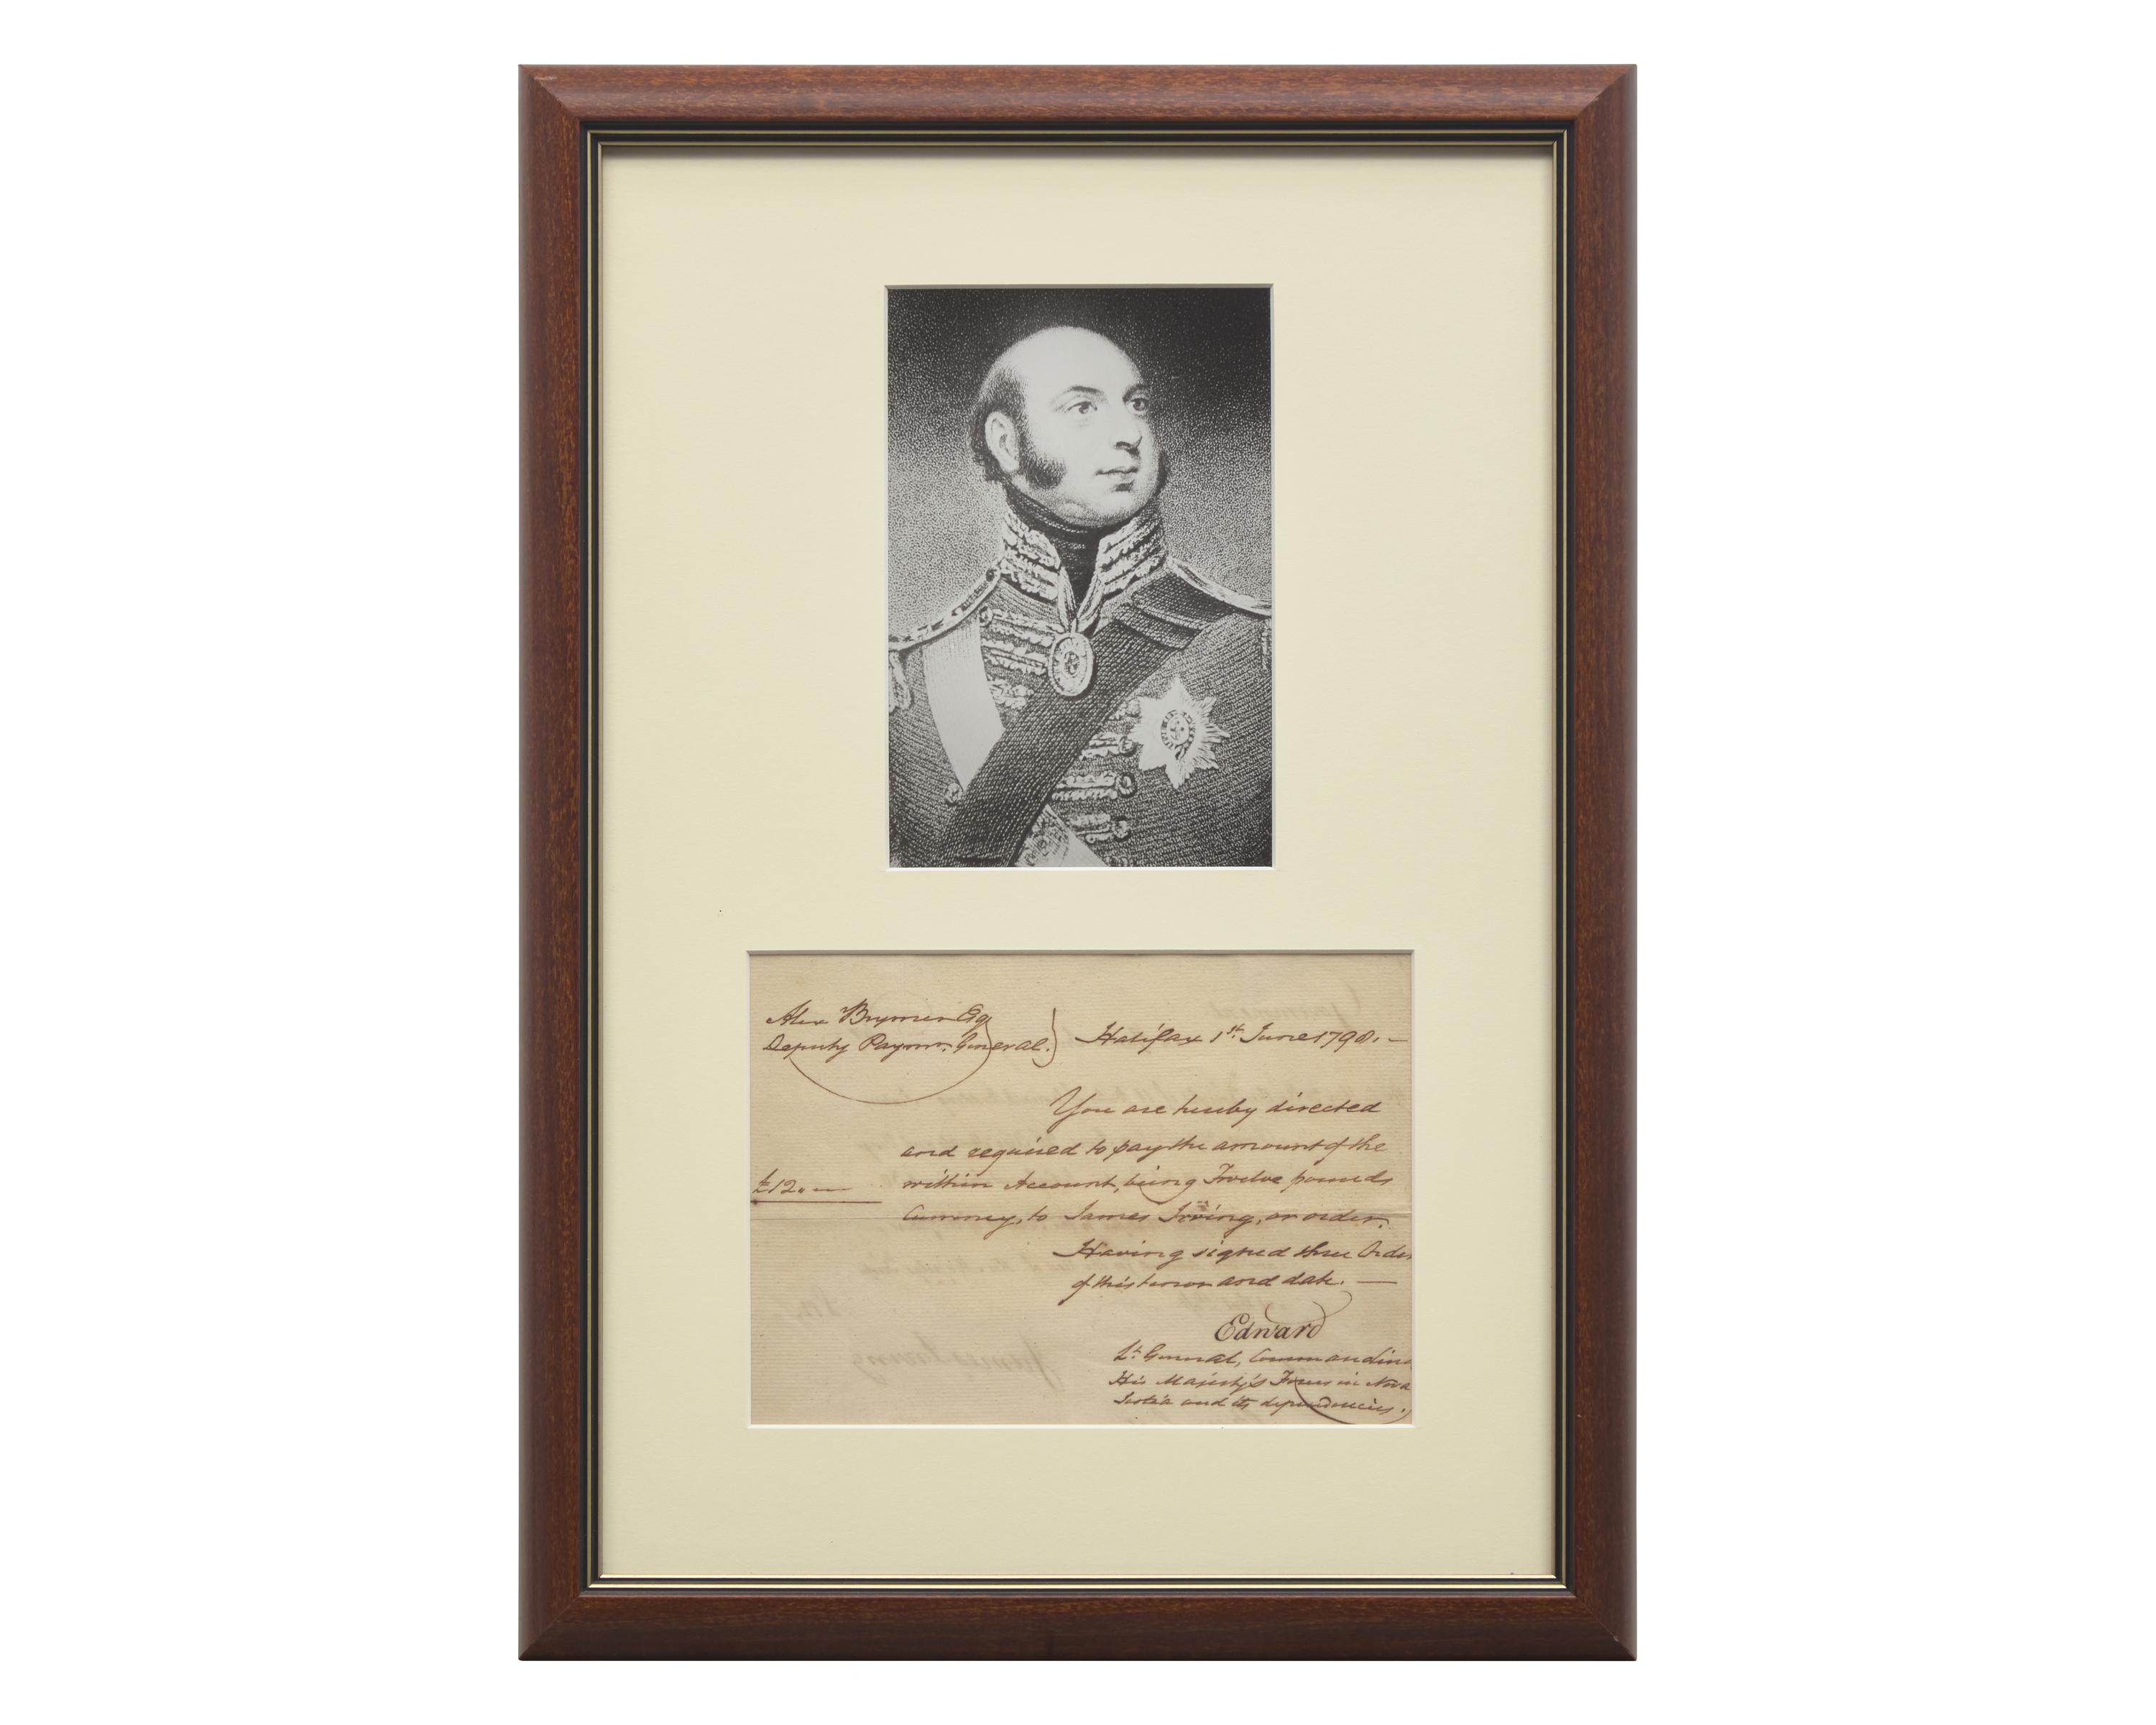 Alex Brymer Esq
Deputy Paymr. General.
Halifax 1st. June 1798. —
You are hereby directed
and required to pay the amount of the
£12.— within Account, being Twelve pounds
Currency, to James Irving, or order.
Having signed three Order
of this tenor and date. —
Edward
Lt. General, Commanding
His Majesty's Forces in Nova
Scotia and its dependencies.